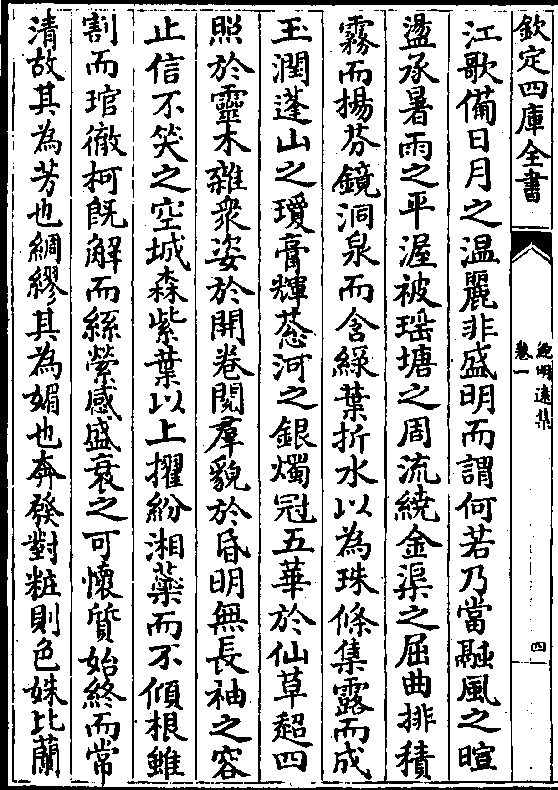 欽定四庫全書
鮑明遠集
卷一
四
江歌備日月之温麗非盛明而謂何若乃當融風之暄
盪承暑雨之平渥被瑶塘之周流繞金渠之屈曲排積
霧而揚芬鏡洞泉而含綠葉折水以為珠條集露而成
玉潤蓬山之瓊膏輝葱河之銀燭冠五華於仙草超四
照於靈木雜衆姿於開卷閱羣貌於昏明無長袖之容
止信不笑之空城森紫葉以上擢紛湘蘂而不傾根雖
割而琯徹柯既解而絲縈感盛衰之可懷質始終而常
清故其為芳也綢繆其為媚也奔發對粧則色姝比蘭